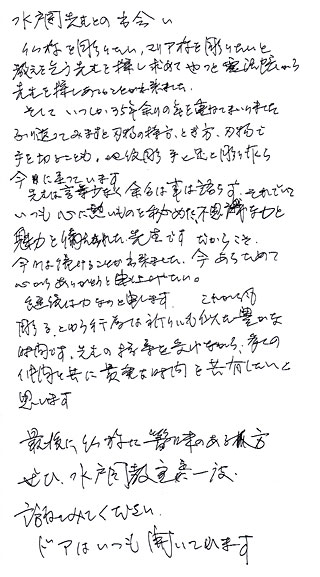 水戸岡先生との出会い
仏像を彫りたい、マリア像を彫りたいと
教えを乞う先生を探し求めてやっと
先生を探しあてることが出来ました。
そして いつしか35年余りの年を重ねてまいりました
ふり返ってみますと刃物の持方、とぎ方、刃物で
手を切ることも。地紋彫 手と足と彫り
今日に至っています
先生は言葉少なく余分な事は語らず、それでいて
いつも心に熱いものを秘めた不思議な力と
魅力を備えられた先生です だからこそ
今日迄続けることが出来ました。今あらためて
心からありがとうと申し上げたい。
継続は力なりと申します。これからも
彫る、という行為は祈りにも似た豊かな
時間です。先生の指導を受けながら、多くの
仲間と共に貴重な時間を共有したいと
思います
最後に、仏像に興味のある様方
ぜひ、水戸岡教室へ一度
訪ねてみてください
ドアはいつも開いております